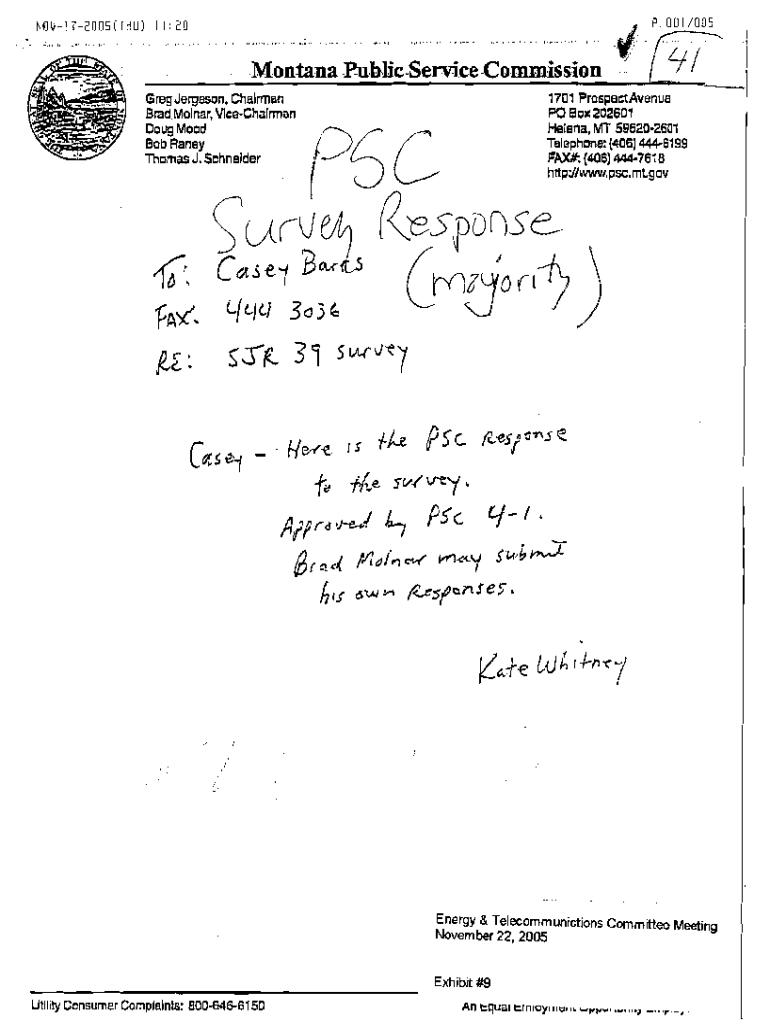 NOV-17-2005(THU) 11:20
P. 001/005
41
Montana Public Service Commission
Greg Jergeson, Chairman
Brad Molnar, Vice-Chairman
Doug Mood
Bob Raney
Thomas J. Schneider
1701 Prospect Avenue
PO Box 202601
Helena, MT 59620-2601
Telephone: (406) 444-6199
FAX#: (406) 444-7618
http://www.psc.mt.gov
PSC
Survey Response
(majority)
To: Casey Barrs
FAX: 444 3036
RE: SJR 39 survey
Casey - Here is the PSC Response
to the survey.
Approved by PSC 4-1.
Brad Molnar may submit
his own Responses.
Kate Whitney
Energy & Telecommunictions Committee Meeting
November 22, 2005
Exhibit #9
Utility Consumer Complaints: 800-646-6150
An Equal Employment Opportunity